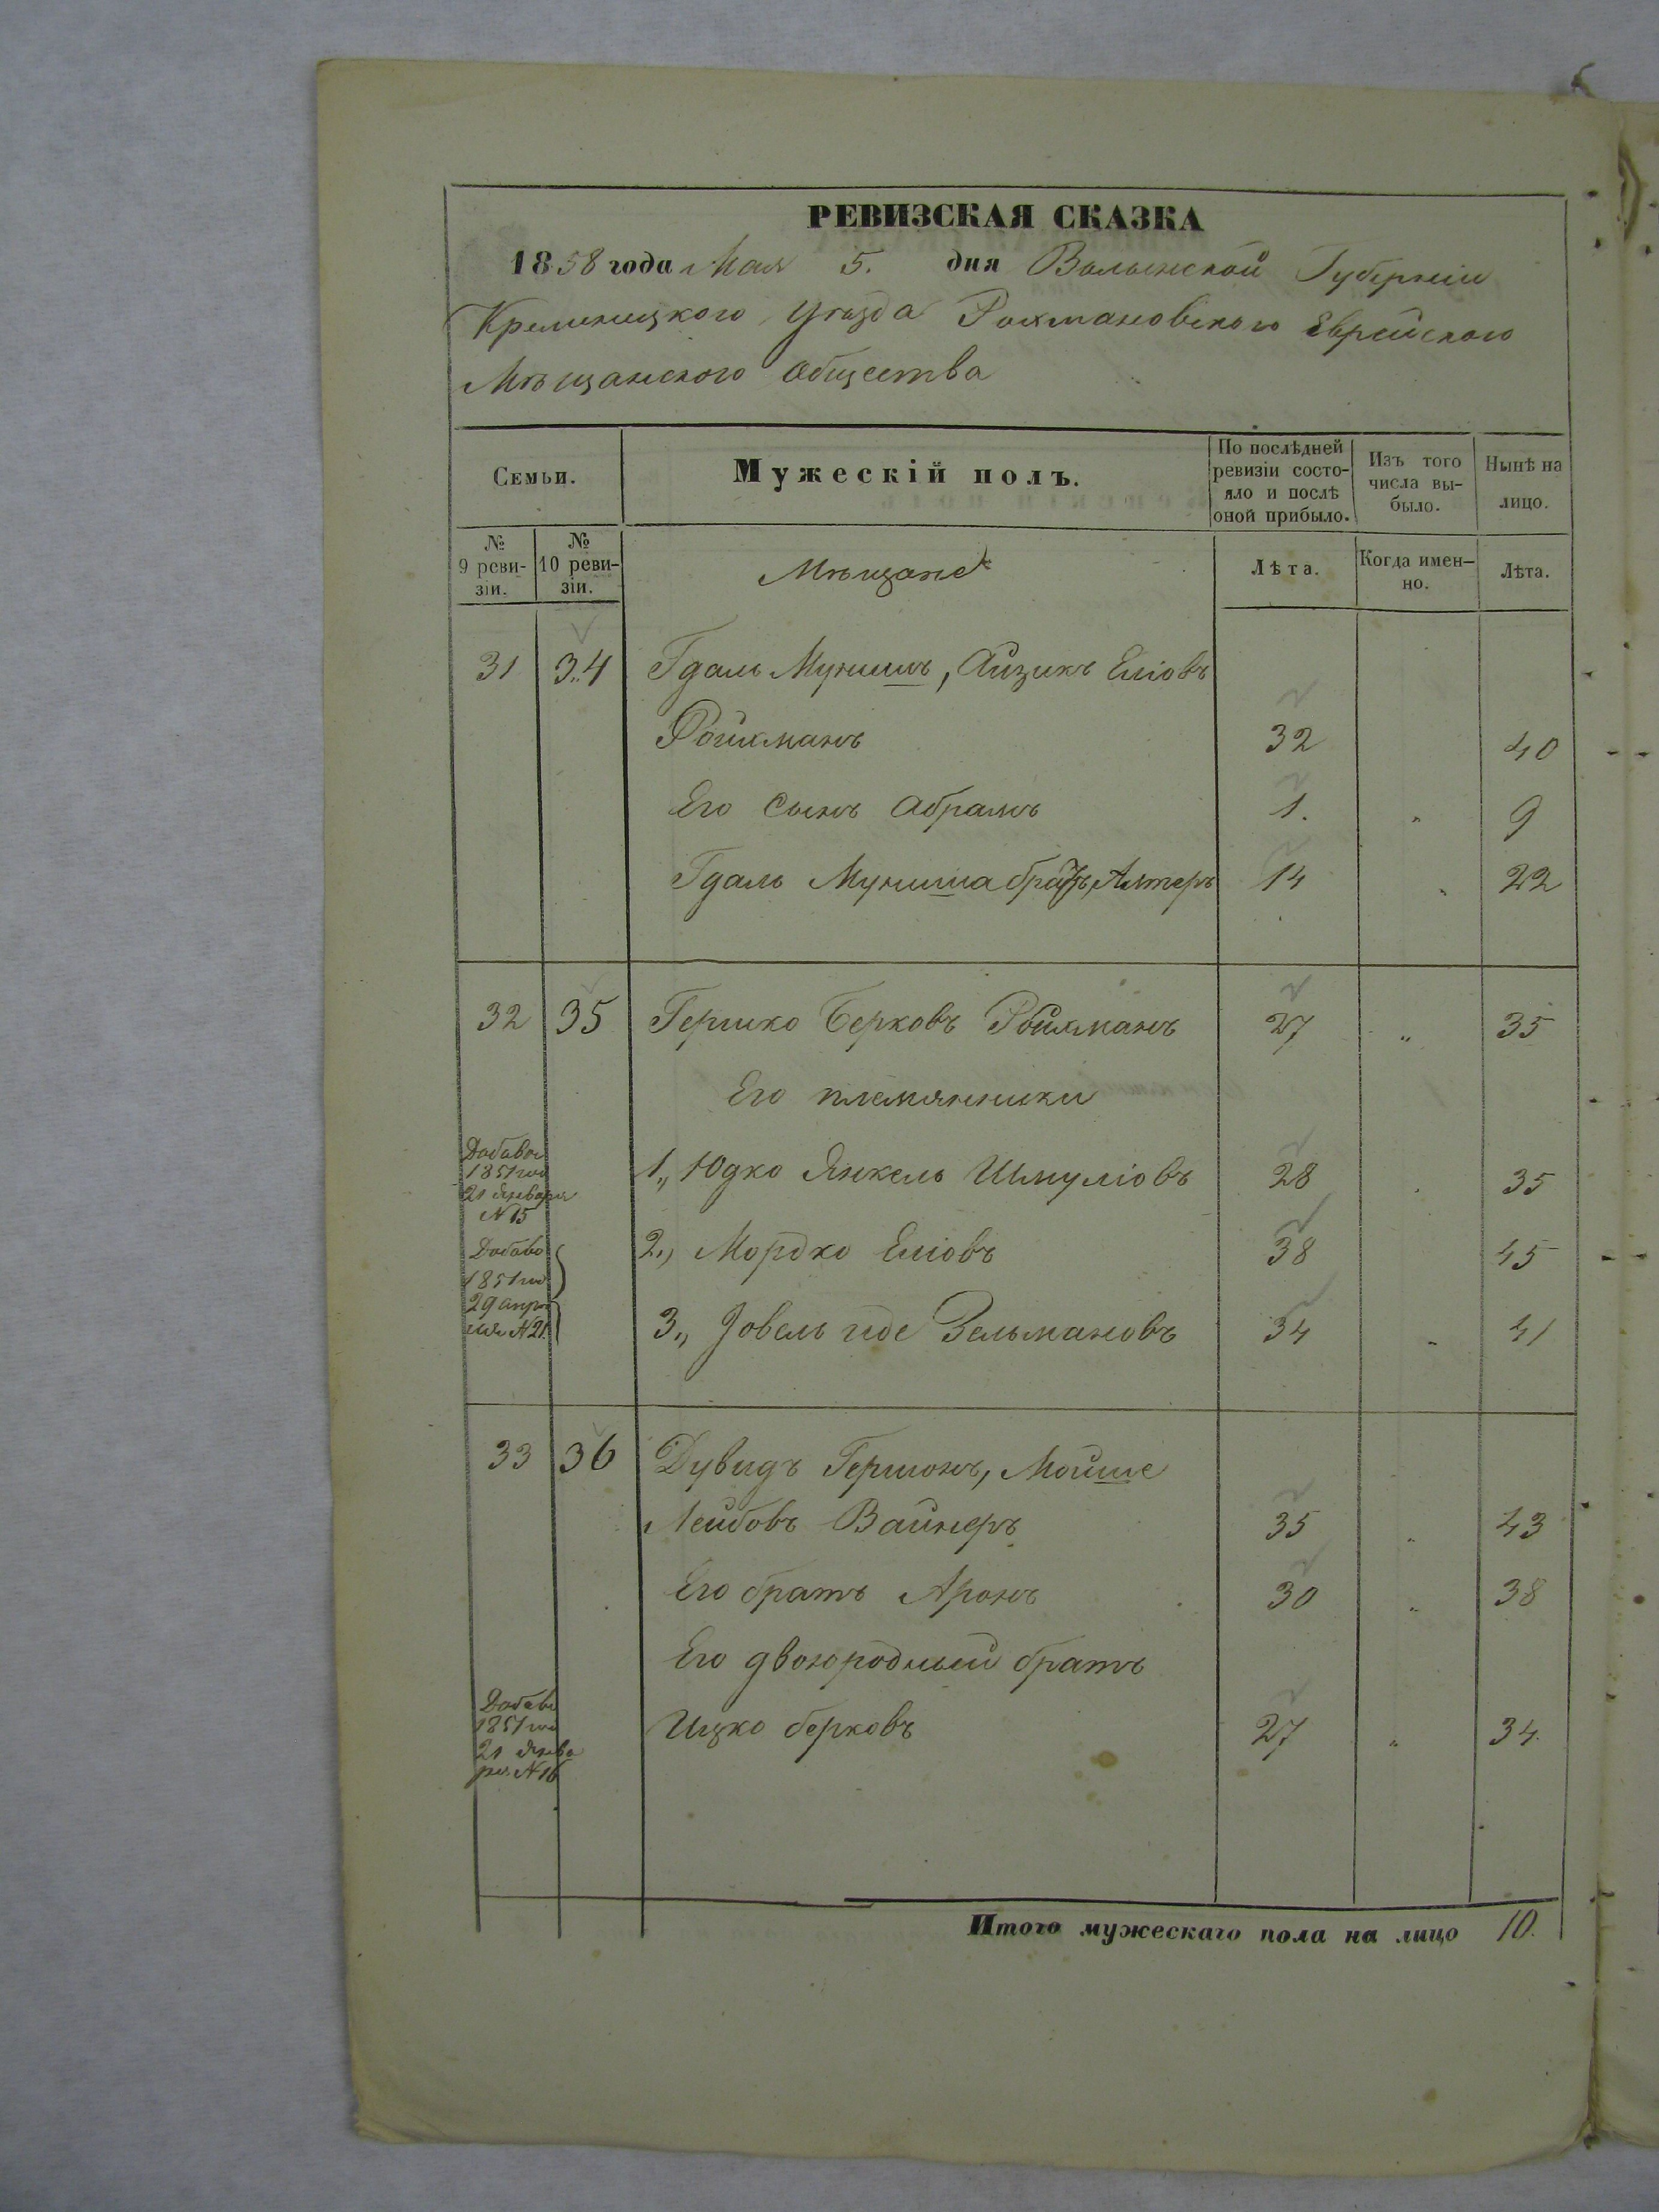 РЕВИЗСКАЯ СКАЗКА
1858 года Мая 5. дня Волынской Губерніи
Кременецкого Уѣзда Рохмановского Еврейского
Мѣщанского Общества
Семьи.
Мужескій полъ.
По послѣдней ревизіи состояло и послѣ оной прибыло.
Изъ того числа выбыло.
Нынѣ на лицо.
№ 9 ревизіи.
№ 10 ревизіи.
Мѣщане
Лѣта.
Когда именно.
Лѣта.
31 34 Гдаль Мунишъ, Айзикъ Еліовъ
Ройхманъ 32 40
Его Сынъ Абрамъ 1. " 9
Гдаль Муниша братъ, Алтеръ 14 " 22
32 35 Гершко Берковъ Ройхманъ 27 " 35
Его племянники
Добавоч 1851 го 21 Января N 15
1,, Юдко Янкель Шмуліовъ 28 " 35
Добаво 1851 го 29 апреля N 21.
2,, Мордко Еліовъ 38 45
3,, Іовель Зельмановъ 34 " 41
33 36 Дувидъ Гершонъ, Мойше
Лейбовъ Вайнеръ 35 " 43
Его братъ Аронъ 30 " 38
Его двоюродный братъ
Добаво 1851 го 21 Января N 16
Ицко Берковъ 27 " 34.
Итого мужескаго пола на лицо 10.